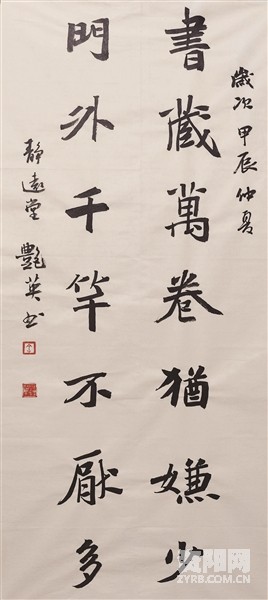 歲次甲辰仲夏
書藏萬卷猶嫌少
門外千竿不厭多
靜遠堂 艷英书
资阳网
ZYRB.COM.CN